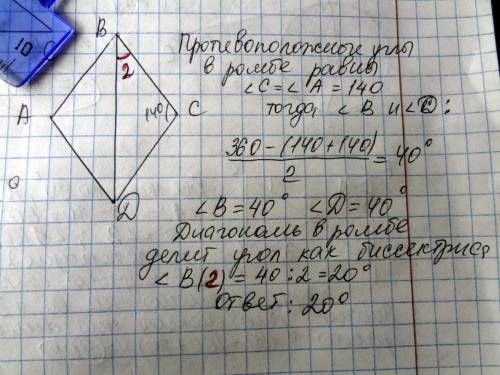 10
B
2
A
140
C
D
Противоположные углы
в ромбе равны
∠C=∠A=140
тогда ∠B и ∠D:
360-(140+140)
2
=40°
∠B=40° ∠D=40°
Диагональ в ромбе
делит угол как биссектриса
∠B(2)=40:2=20°
ответ: 20°